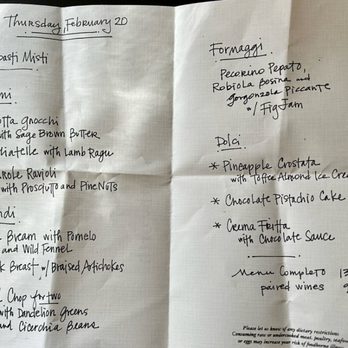 Thursday, February 20
pasti Misti
ni
otta Gnocchi
with Sage Brown Butter
liatelle with Lamb Ragu
role Ravioli
with Prosciutto and Pine Nuts
ndi
Bream with Pomelo
and Wild Fennel
k Breast w/ Braised Artichokes
Chop for two
with Dandelion Greens
and Cicerchia Beans
Formaggi
Pecorino Pepato,
Robiola Bosina and
Gorgonzola Piccante
w/ Fig Jam
Dolci
* Pineapple Crostata
with Toffee Almond Ice Cre
* Chocolate Pistachio Cake
* Crema Fritta
with Chocolate Sauce
Menu Completo 13
paired wines 9
Please let us know of any dietary restrictions
Consuming raw or undercooked meat, poultry, seafoo
or eggs may increase your risk of foodborne illness